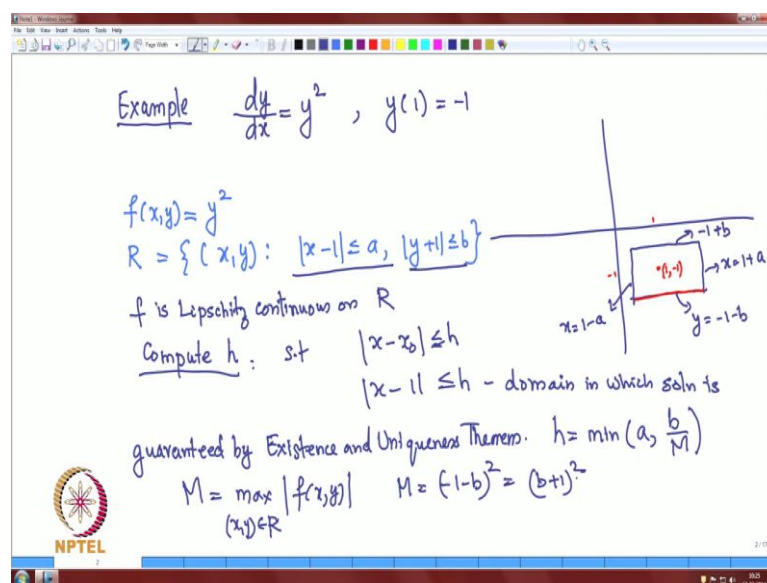 Note1 - Windows Journal
File Edit View Insert Actions Tools Help
Page Width
Example dy/dx = y² , y(1) = -1
f(x,y) = y²
R = { (x,y) : |x-1| ≤ a, |y+1| ≤ b }
f is Lipschitz continuous on R
Compute h : s.t |x-x₀| ≤ h
|x-1| ≤ h - domain in which soln is
guaranteed by Existence and Uniqueness Theorem. h = min(a, b/M)
M = max |f(x,y)| M = (-1-b)² = (b+1)²
(x,y)∈R
1
-1+b
-1
•(1,-1)
x=1+a
x=1-a
y=-1-b
NPTEL
2
2/17
10:25